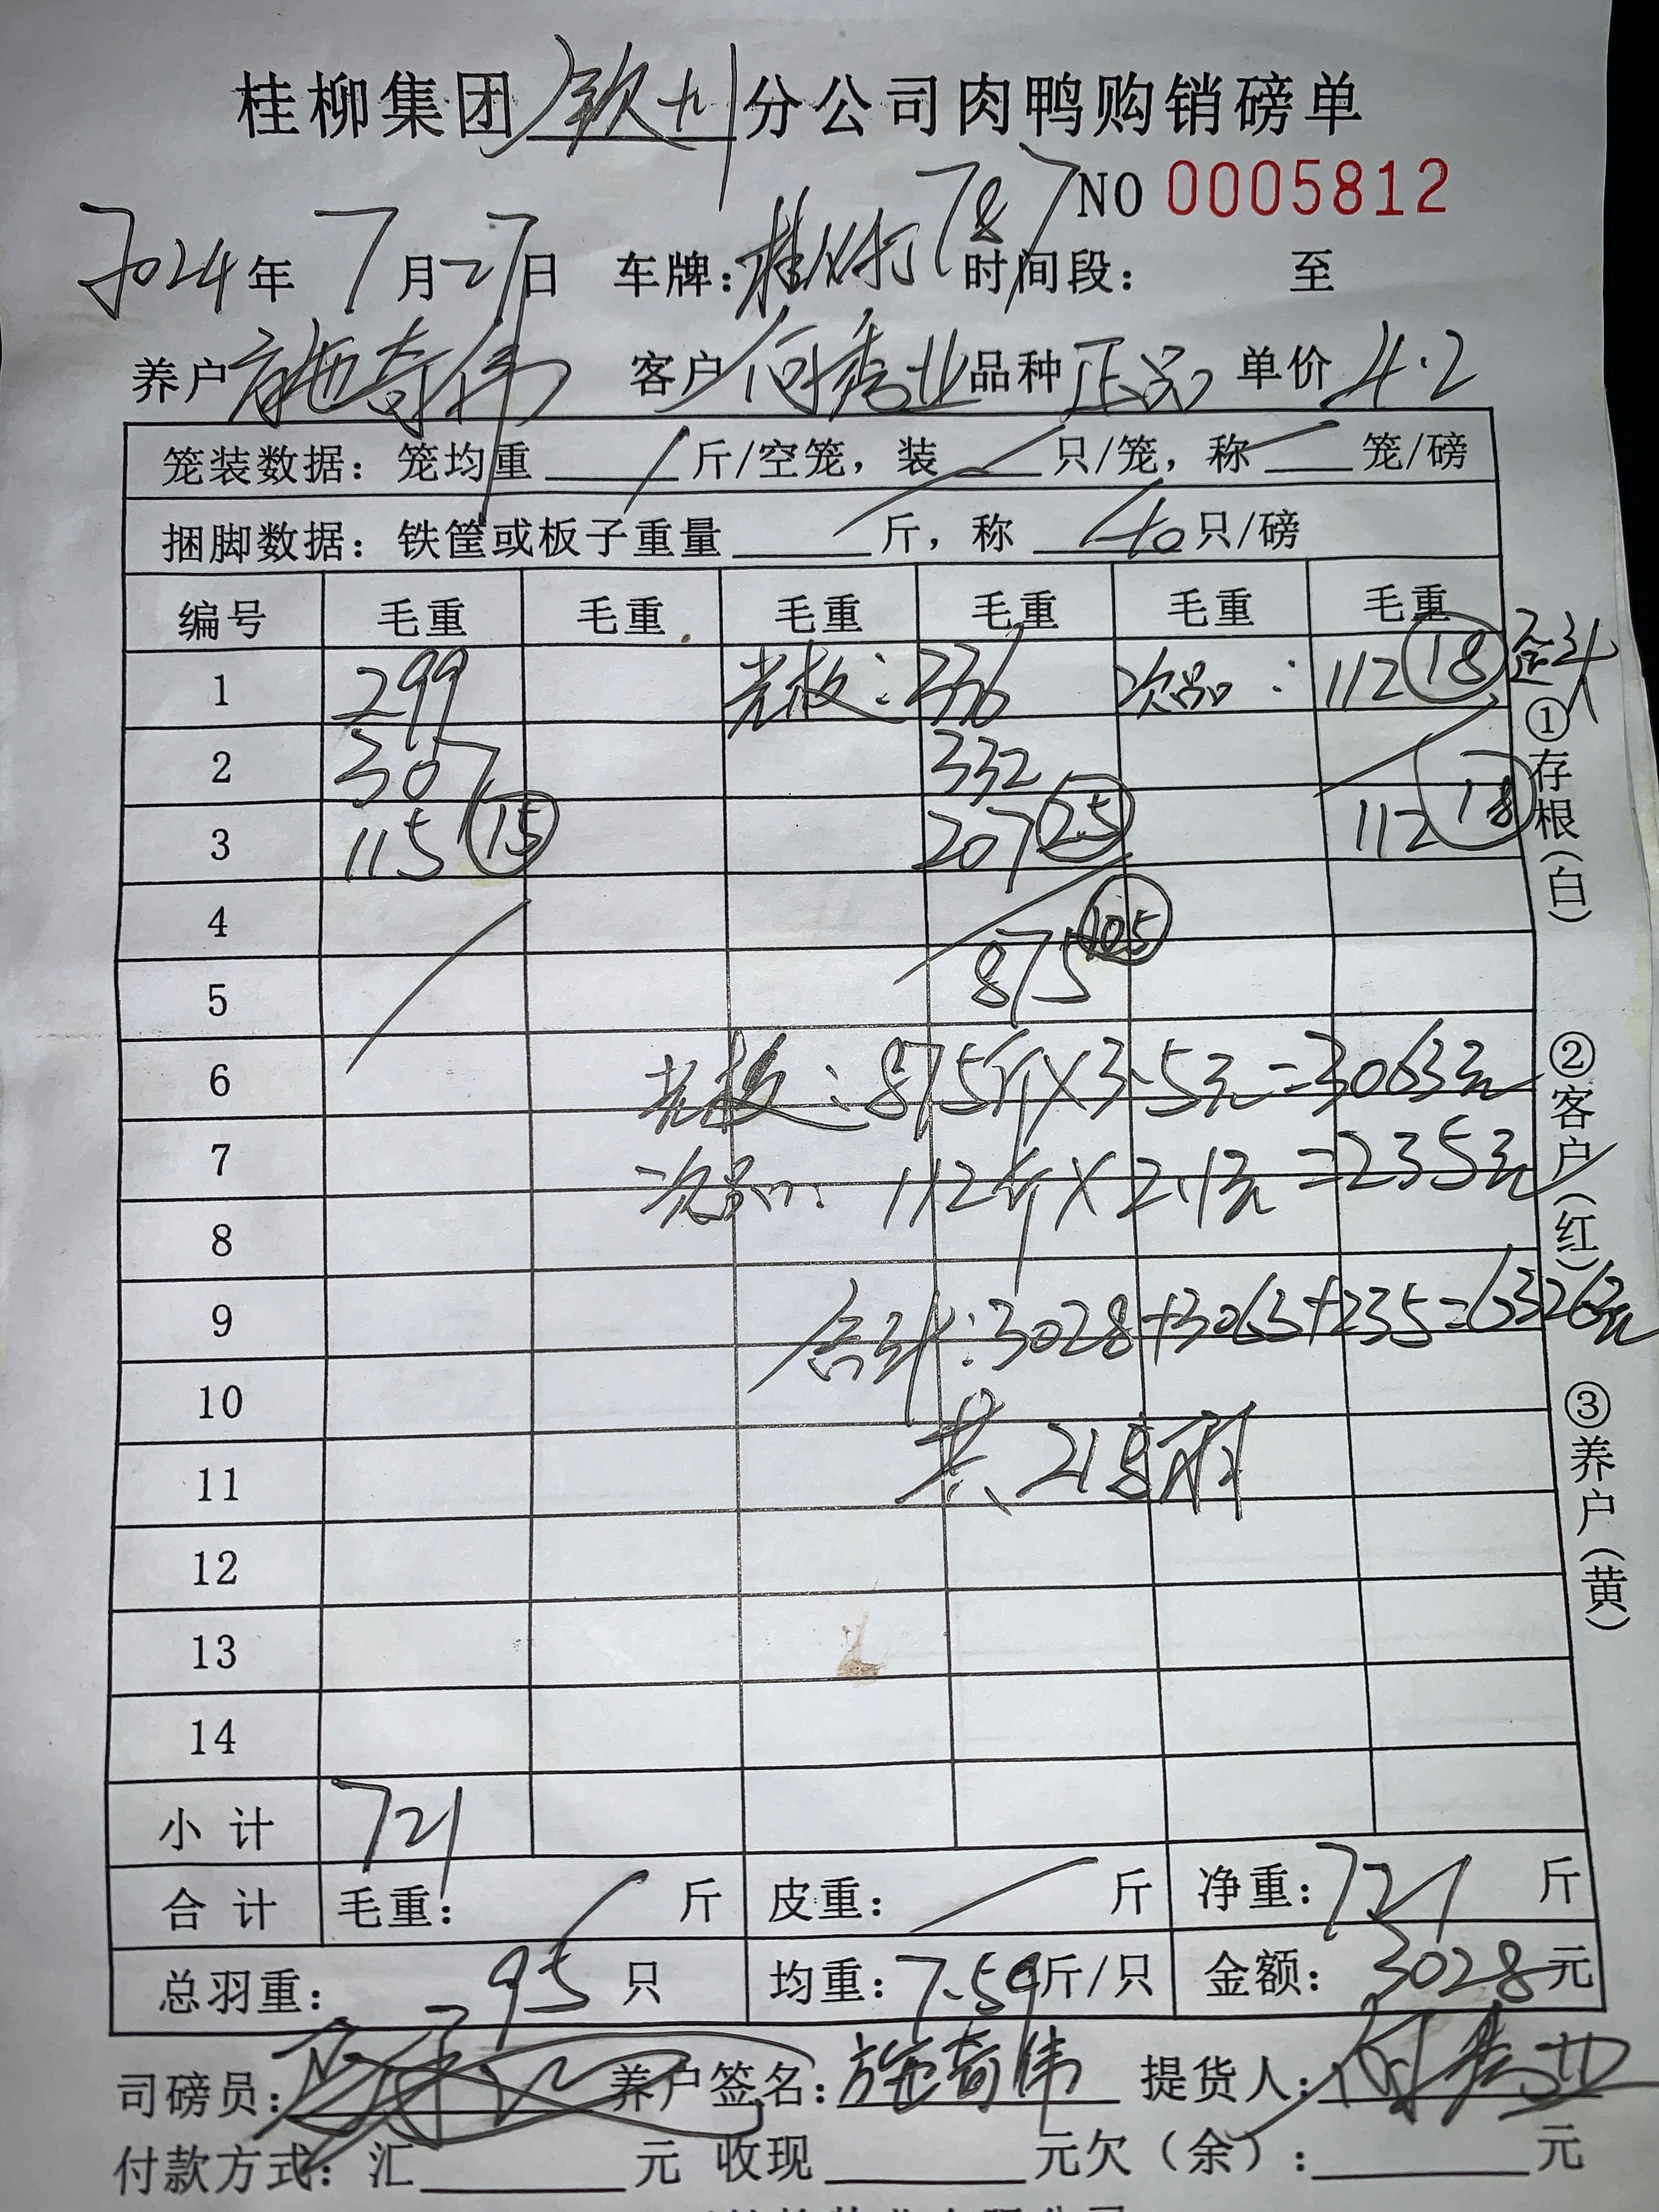 桂柳集团钦州分公司肉鸭购销磅单
NO 0005812
2024年7月27日 车牌: 787 时间段: 至
养户 施奇伟 客户 何秀业 品种 正品 单价 4.2
笼装数据: 笼均重 斤/空笼, 装 只/笼, 称 笼/磅
捆脚数据: 铁筐或板子重量 斤, 称 40 只/磅
编号 毛重 毛重 毛重 毛重 毛重 毛重
1 299 老板: 336 次品: 112 18
2 307 332
3 115 15 207 25 112 18
4 105
5 875
6 老板: 875斤×3.5元=3063元
7 次品: 112斤×2.1元=235元
8
9 合计: 3028+3063+235=6326元
10
11 共218羽
12
13
14
小计 721
合计 毛重: 斤 皮重: 斤 净重: 721 斤
总羽重: 95 只 均重: 7.59斤/只 金额: 3028元
司磅员: 养户签名: 施奇伟 提货人: 何秀业
付款方式: 汇 元 收现 元欠(余): 元
①存根(白)
②客户(红)
③养户(黄)